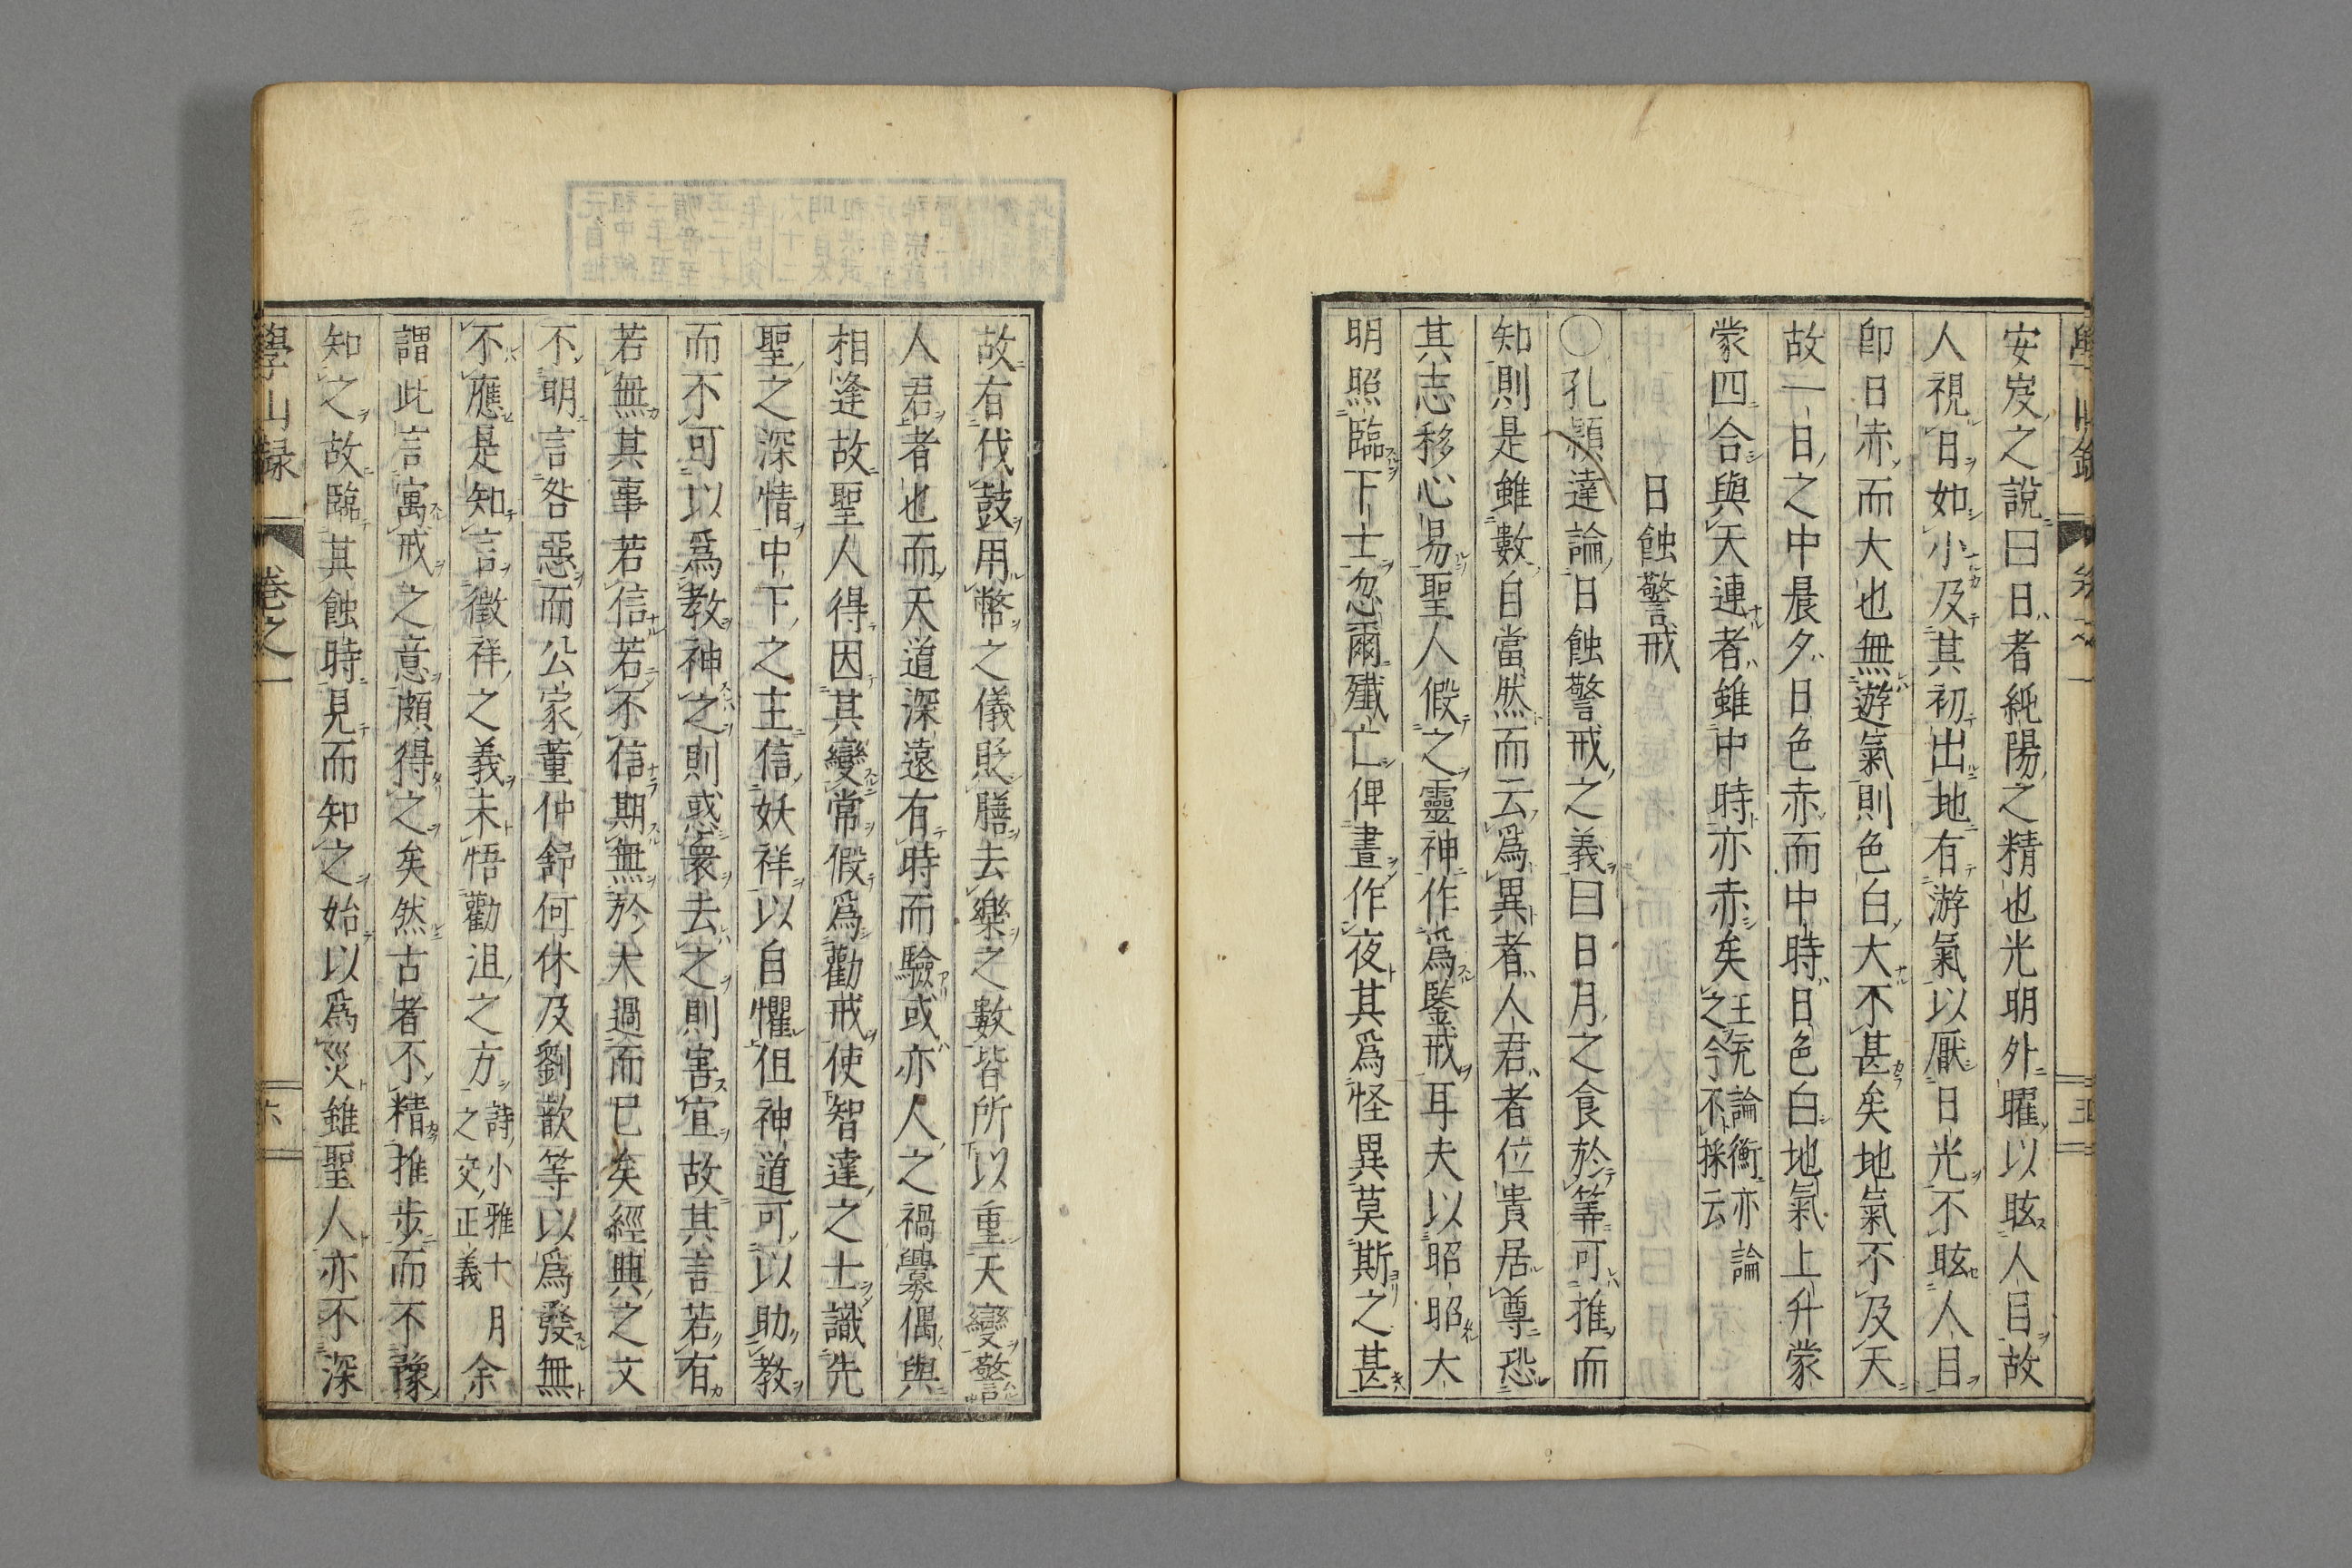 安岌之說曰日者純陽之精也光明外曜以眩人目故
人視日如小及其初出地有游氣以厭日光不眩人目
卽日赤而大也無遊氣則色白大不甚矣地氣不及天
故一日之中晨夕日色赤而中時日色白地氣上升蒙
蒙四合與天連者雖中時亦赤矣王充論衡亦論之今不採云
日蝕警戒
〇孔頴達論日蝕警戒之義曰日月之食於筭可推而
知則是雖數自當然而云爲異者人君者位貴居尊恐
其志移心易聖人假之靈神作爲鑒戒耳夫以昭昭大
明照臨下土忽爾殲亡俾晝作夜其爲怪異莫斯之甚
故有伐鼓用幣之儀貶膳去樂之數皆所以重天變警
人君者也而天道深遠有時而驗或亦人之禍釁偶與
相逢故聖人得因其變常假爲勸戒使智達之士識先
聖之深情中下之主信妖祥以自懼但神道可以助教
而不可以爲教神之則惑衆去之則害宜故其言若有
若無其事若信若不信期無於大過而已矣經典之文
不明言咎惡而公家董仲舒何休及劉歆等以爲發無
不應是知言徵祥之義未悟勸沮之方詩小雅十月之交正義余
謂此言寓戒之意頗得之矣然古者不精推步而不豫
知之故臨其蝕時見而知之始以爲災雖聖人亦不深
學山録 卷之一 六